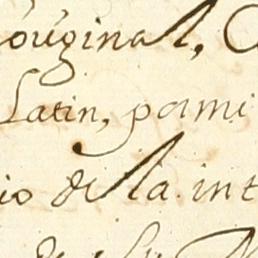 óriginal, C
Latin, por mi
io de la int